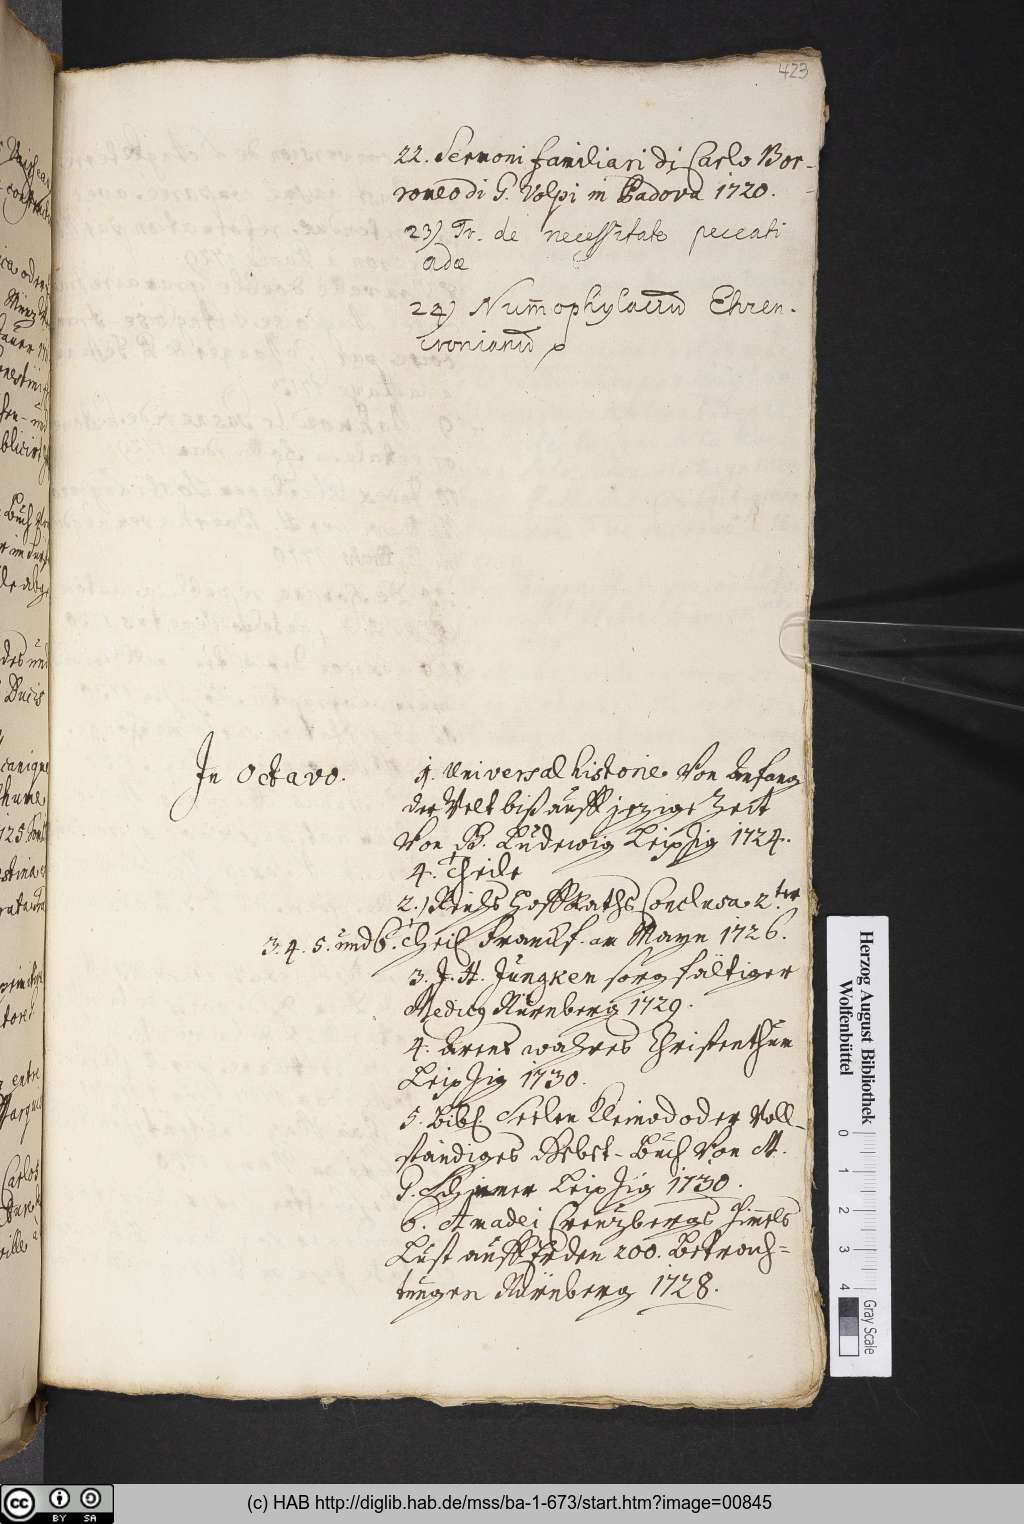 423
22. Sermoni familiari di Carlo Bor-
romeo di G. Volpi in Padova 1720.
23) Tr. de necessitate peccati
adae
24) Num̄ophylaciū Ehren-
cronianū
In Octavo.
1. Universal historie von Anfang
der Welt biß auff jezige Zeit
von B. Ludewig Leipzig 1724.
4. Theile
2.) Reichs Hoff Raths Conclusa 2ter
3. 4. 5. und 6. Theil Franckf. am Mayn 1726.
3. J. H. Jüngken sorgfältiger
Medicus Nürnberg 1729.
4. Arens wahres Christenthum
Leipzig 1730.
5. Bibl. Seelen Kleinod oder Voll-
ständiges Gebet-Buch von M.
G. Leipzig 1730.
6. Amadei Creuzbergs Him̄els
Lust auff Erden 200. Betrach=
tungen Nürnberg 1728.
Herzog August Bibliothek
Wolfenbüttel
0 1 2 3 4
Gray Scale
(c) HAB http://diglib.hab.de/mss/ba-1-673/start.htm?image=00845
cc BY SA